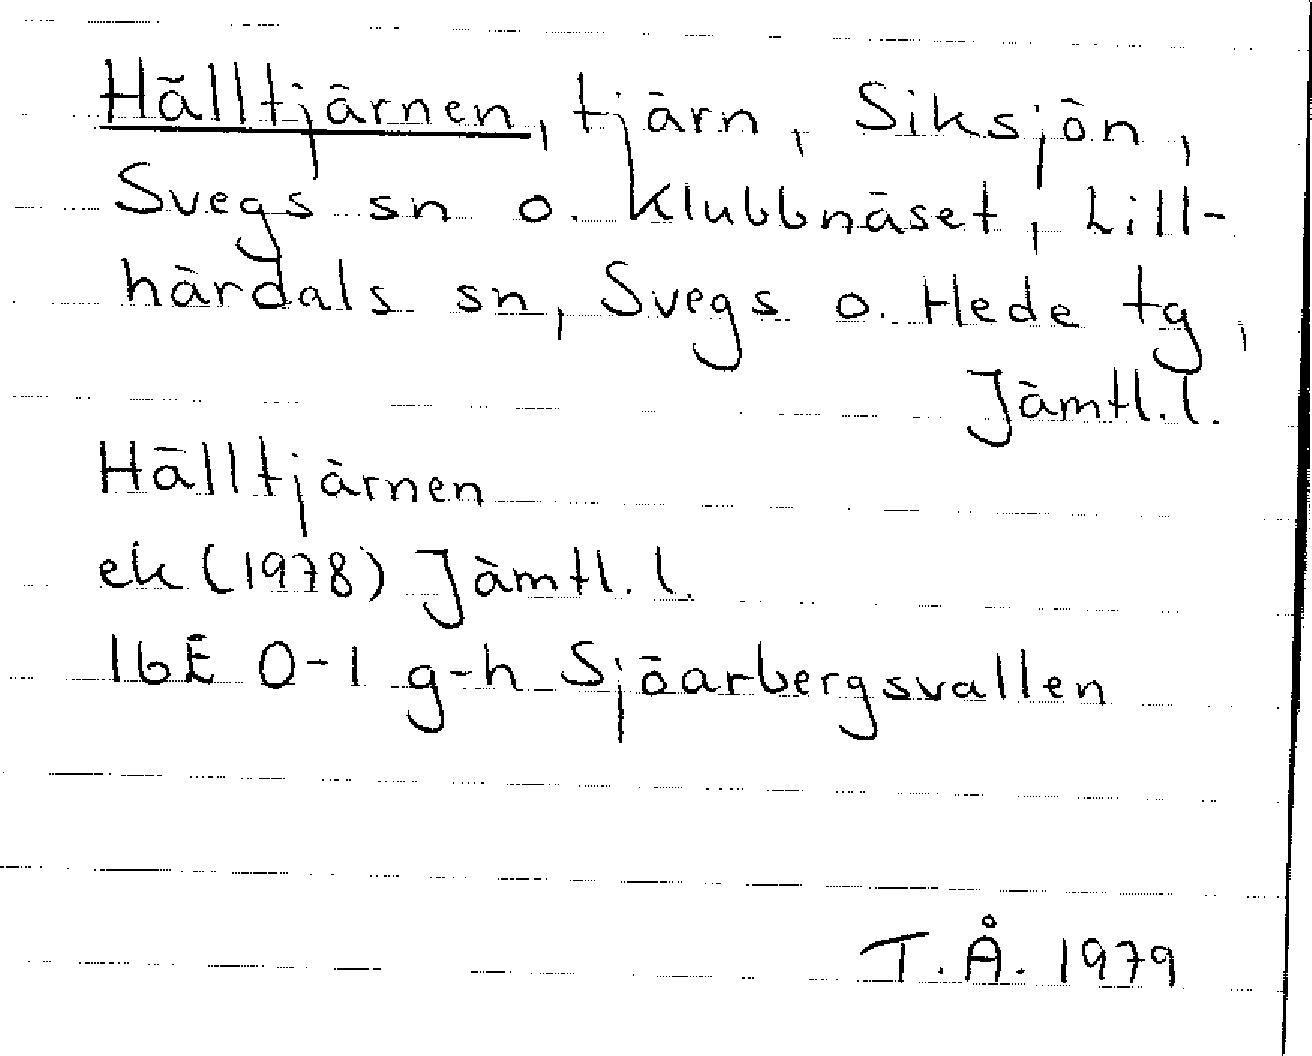 Hälltjärnen, tjärn, Siksjön,
Svegs sn o. Klubbnäset, Lill-
härdals sn, Svegs o. Hede tg,
Jämtl.l.
Hälltjärnen
ek (1978) Jämtl. l.
16E 0-1 g-h Sjöarbergsvallen
T.Å. 1979